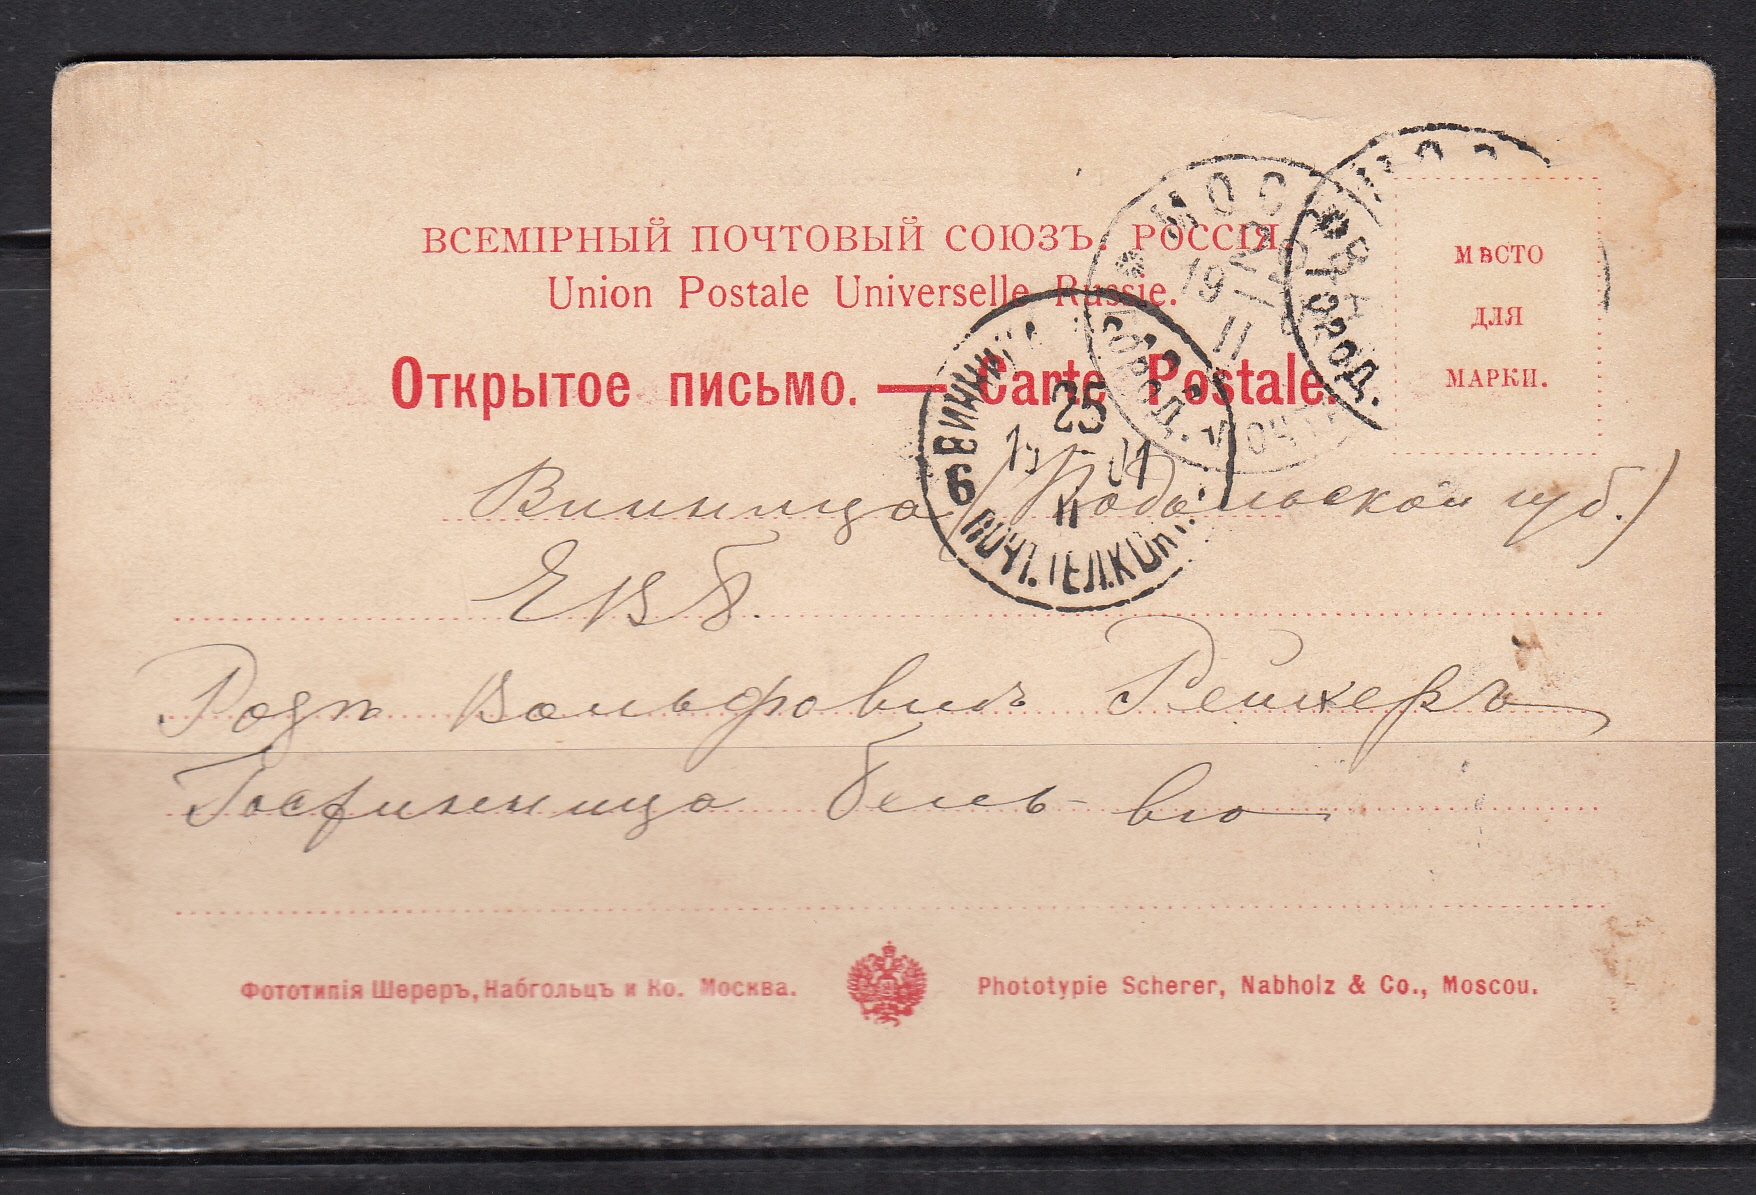 ВСЕМІРНЫЙ ПОЧТОВЫЙ СОЮЗЪ. РОССІЯ.
Union Postale Universelle. Russie.
Открытое письмо. — Carte Postale.
МѢСТО
ДЛЯ
МАРКИ.
МОСКВА
19
II
ГОРОД. ПОЧТА
МОС
ГОРОД.
ВИННИЦА
25
01
II
6
ПОЧ. ТЕЛ. КОН.
Винница (Подольской губ.)
ЕВБ.
Вольфовичъ Рейхеръ
Гостинница Бель-вю
Фототипія Шереръ, Набгольцъ и Ко. Москва.
Phototypie Scherer, Nabholz & Co., Moscou.